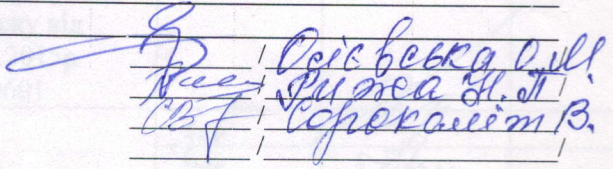 / Осієвська О.М /
/ Рижа Н.П. /
/ Сороколіт В. /